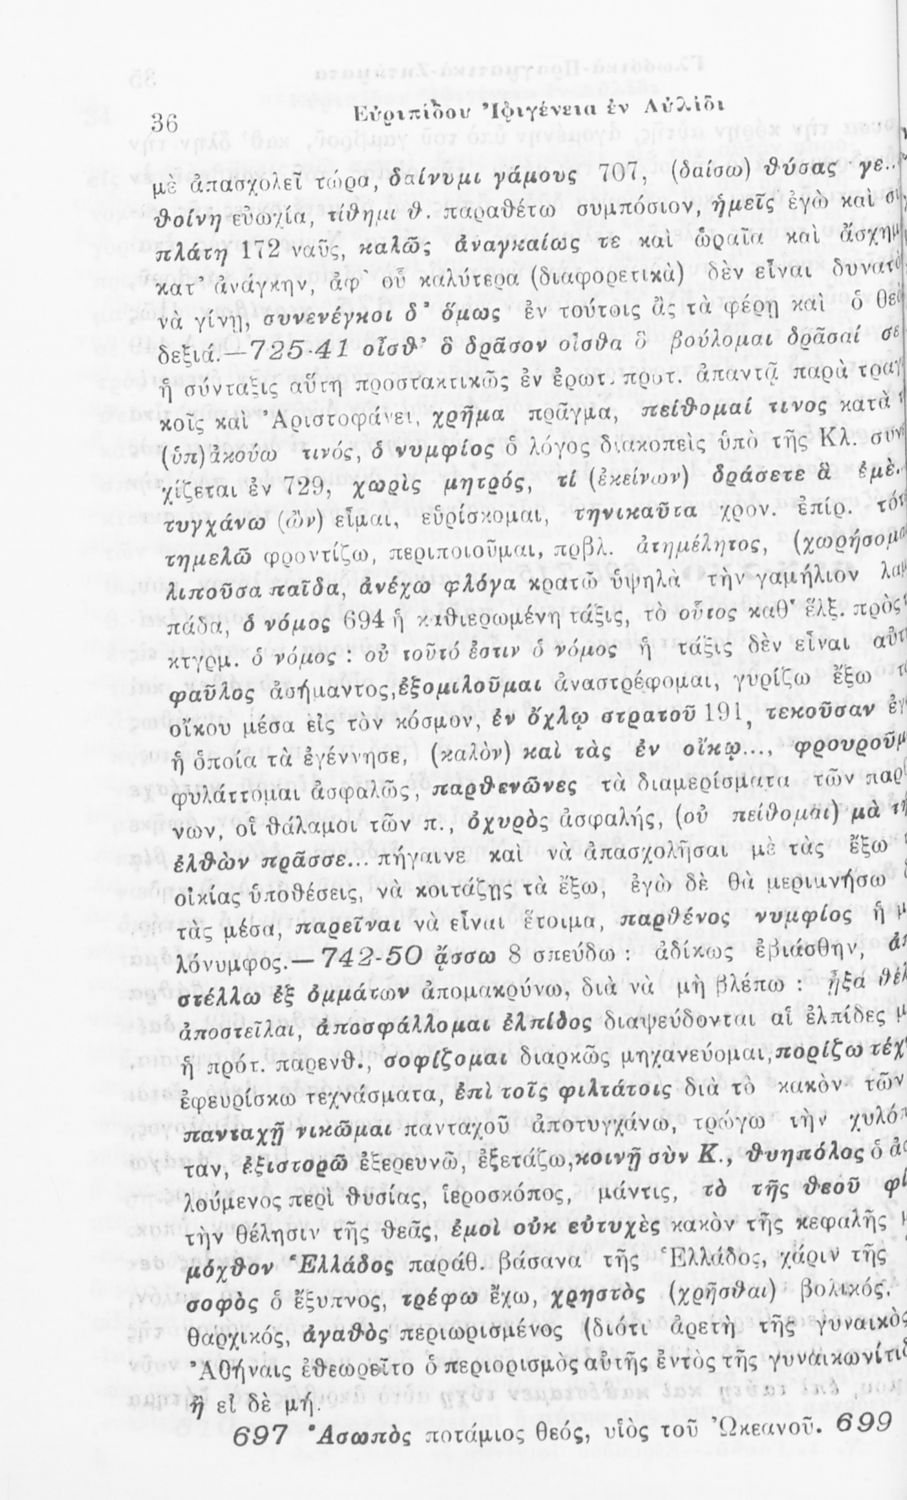 36
Εὐριπίδου Ἰφιγένεια ἐν Αὐλίδι
μὲ ἀπασχολεῖ τώρα, δαίνυμι γάμους 707, (δαίσω) θύσας γε..
θοίνη εὐωχία, τίθημι θ. παραθέτω συμπόσιον, ἡμεῖς ἐγὼ καὶ
πλάτη 172 ναῦς, καλῶς ἀναγκαίως τε καὶ ὡραῖα καὶ ἄσχημ
κατ' ἀνάγκην, ἀφ' οὗ καλύτερα (διαφορετικὰ) δὲν εἶναι δυνατὸ
νὰ γίνῃ, συνενέγκοι δ' ὅμως ἐν τούτοις ἂς τὰ φέρῃ καὶ ὁ θεὸ
δεξιά.—725-41 οἶσθ' ὃ δρᾶσον οἶσθα ὃ βούλομαι δρᾶσαί σε
ἡ σύνταξις αὕτη προστακτικῶς ἐν ἐρωτ. προτ. ἀπαντᾷ παρὰ τραγ
κοῖς καὶ Ἀριστοφάνει, χρῆμα πρᾶγμα, πείθομαί τινος κατὰ
(ὑπ)ακούω τινός, ὁ νυμφίος ὁ λόγος διακοπεὶς ὑπὸ τῆς Κλ. συν
χίζεται ἐν 729, χωρὶς μητρός, τί (ἐκείνων) δράσετε ἃ ἐμὲ.
τυγχάνω (ὢν) εἶμαι, εὑρίσκομαι, τηνικαῦτα χρον. ἐπίρ. τότ
τημελῶ φροντίζω, περιποιοῦμαι, πρβλ. ἀτημέλητος, (χωρήσομα
λιποῦσα παῖδα, ἀνέχω φλόγα κρατῶ ὑψηλὰ τὴν γαμήλιον λαμ
πάδα, ὁ νόμος 694 ἡ καθιερωμένη τάξις, τὸ οὗτος καθ' ἕλξ. πρὸς
κτγρμ. ὁ νόμος : οὐ τοῦτό ἐστιν ὁ νόμος ἡ τάξις δὲν εἶναι αὐτ
φαῦλος ἀσήμαντος, ἐξομιλοῦμαι ἀναστρέφομαι, γυρίζω ἔξω
οἴκου μέσα εἰς τὸν κόσμον, ἐν ὄχλῳ στρατοῦ 191, τεκοῦσαν ἐγ
ἡ ὁποία τὰ ἐγέννησε, (καλὸν) καὶ τὰς ἐν οἴκῳ..., φρουροῦμ
φυλάττομαι ἀσφαλῶς, παρθενῶνες τὰ διαμερίσματα τῶν παρ
νων, οἱ θάλαμοι τῶν π., ὀχυρὸς ἀσφαλής, (οὐ πείθομαι) μὰ τὴ
ἐλθὼν πρᾶσσε... πήγαινε καὶ νὰ ἀπασχολῆσαι μὲ τὰς ἔξω
οἰκίας ὑποθέσεις, νὰ κοιτάζῃς τὰ ἔξω, ἐγὼ δὲ θὰ μεριμνήσω
τὰς μέσα, παρεῖναι νὰ εἶναι ἕτοιμα, παρθένος νυμφίος ἡ μ
λόνυμφος.—742-50 ᾄσσω 8 σπεύδω : ἀδίκως ἐβιάσθην, ἀπ
στέλλω ἐξ ὀμμάτων ἀπομακρύνω, διὰ νὰ μὴ βλέπω : ᾖξα θέλ
ἀποστεῖλαι, ἀποσφάλλομαι ἐλπίδος διαψεύδονται αἱ ἐλπίδες μ
ἡ πρότ. παρενθ., σοφίζομαι διαρκῶς μηχανεύομαι, πορίζω τέχ
ἐφευρίσκω τεχνάσματα, ἐπὶ τοῖς φιλτάτοις διὰ τὸ κακὸν τῶν
πανταχῇ νικῶμαι πανταχοῦ ἀποτυγχάνω, τρώγω τὴν χυλό
ταν, ἐξιστορῶ ἐξερευνῶ, ἐξετάζω, κοινῇ σὺν Κ., θυηπόλος ὁ ἀσ
λούμενος περὶ θυσίας, ἱεροσκόπος, μάντις, τὸ τῆς θεοῦ φί
τὴν θέλησιν τῆς θεᾶς, ἐμοὶ οὐκ εὐτυχὲς κακὸν τῆς κεφαλῆς
μόχθον Ἑλλάδος παράθ. βάσανα τῆς Ἑλλάδος, χάριν τῆς
σοφὸς ὁ ἔξυπνος, τρέφω ἔχω, χρηστὸς (χρῆσθαι) βολικός,
θαρχικός, ἀγαθὸς περιωρισμένος (διότι ἀρετὴ τῆς γυναικὸς
Ἀθήναις ἐθεωρεῖτο ὁ περιορισμὸς αὐτῆς ἐντὸς τῆς γυναικωνίτιδ
ἢ εἰ δὲ μή.
697 Ἀσωπὸς ποτάμιος θεός, υἱὸς τοῦ Ὠκεανοῦ. 699